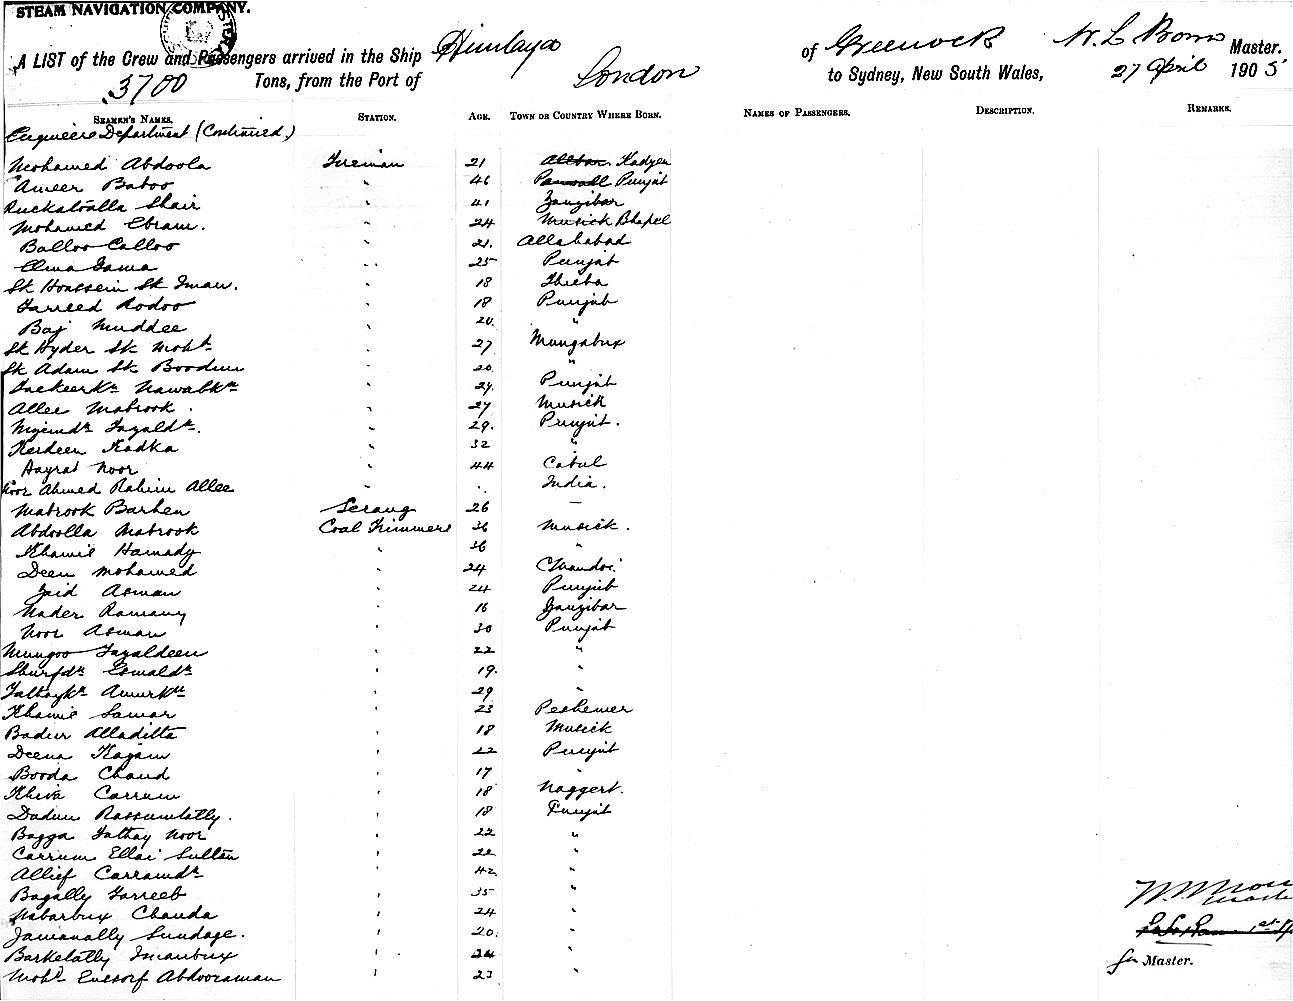 STEAM NAVIGATION COMPANY.
A LIST of the Crew and Passengers arrived in the Ship Himlaya of Greenock W. L. Brown Master.
3700 Tons, from the Port of London to Sydney, New South Wales, 27 April 1905
SEAMEN'S NAMES. STATION. AGE. TOWN OR COUNTRY WHERE BORN. NAMES OF PASSENGERS. DESCRIPTION. REMARKS.
Engineers Department (Continued)
Mohamed Abdoola Fireman 21
Ameer Baboo " 46 Punjab
Shair " 41 Zanzibar
Mohamed Ebram. " 24 Musick
Balloo Calloo " 21. Allahabad
Elma Gama " 25 Punjab
Sk Houssein Sk Iman. " 18
Farreed Rodoo " 18 Punjab
Baj Muddee " 20. "
Sk Hyder Sk Mohd " 27 Mungabux
Sk Adam Sk Boodun " 20. "
Fackeerkn Nawabkn " 24. Punjab
Allee Mabrook. " 27 Musick
Fazaldn. " 29. Punjab.
Kerdeen Kadka " 32 "
Hayrat Noor " 44 Cabul
Noor Ahmed Rahim Allee " . India.
Mabrook Barhen Serang 26 —
Abdoolla Mabrook Coal Trimmers 36 Musick.
Khamis Hamady " 36 "
Deen Mohamed " 24
Zaid Asman " 24 Punjab
Nader Ramany " 16 Zanzibar
Noor Asman " 30 Punjab
Mungoo Fazaldeen " 22 "
Sburfdn Esmaldn " 19. "
Fathaykn Amurkn " 29 "
Khamis Samar " 23 Peshewer
Badur Alladitta " 18 Musick
Deena Kazam " 22 Punjab
Booda Chand " 17 "
Khiva Carrum " 18 Naggert.
Dadun " 18 Punjab
Bagga Fathay Noor " 22 "
Carrum Ellai Sultan " 22 "
Allief Carramdn " 42. "
Bagally Farreeb " 35 "
Nabarbux Chanda " 24 "
Jamanally Sundage. " 20. "
Barkelatly Imanbux " 24 "
Mohd. Eussorf Abdooraman " 23 "
for Master.